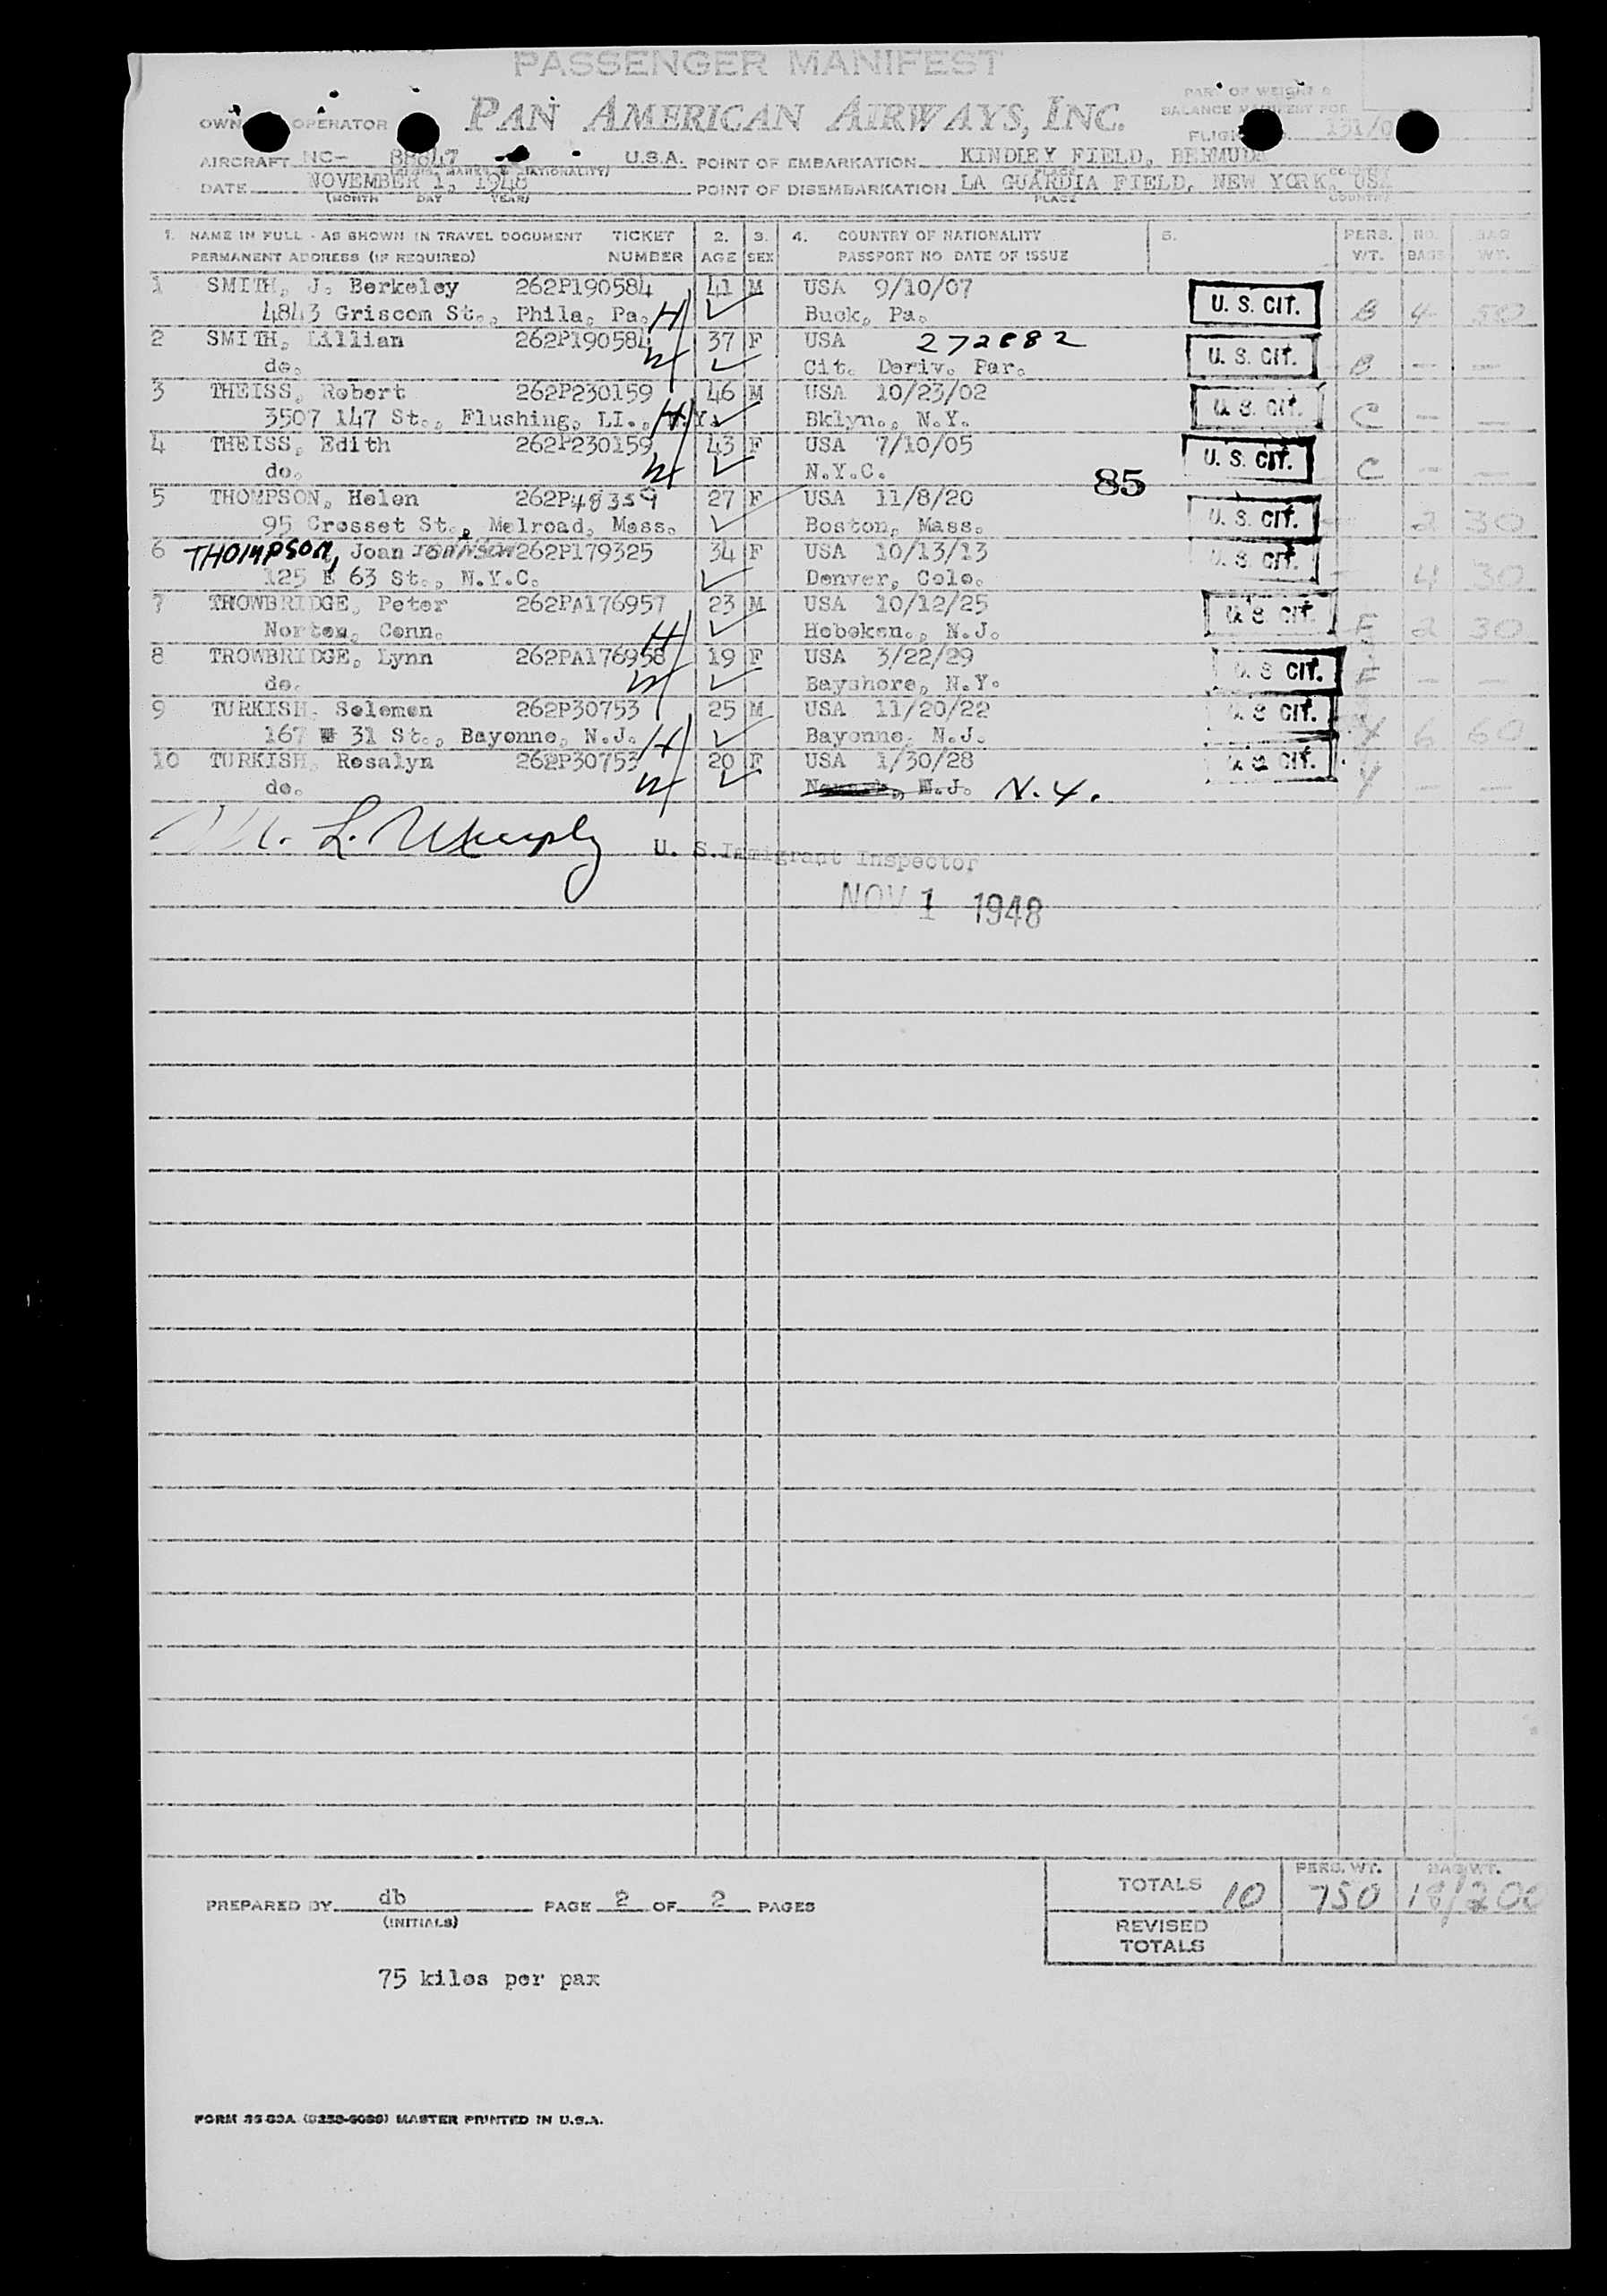 PASSENGER MANIFEST
PAN AMERICAN AIRWAYS, INC.
PART OF WEIGHT &
BALANCE MANIFEST FOR
OWN OPERATOR
FLIGH 131/0
AIRCRAFT NC- 88847 U.S.A. POINT OF EMBARKATION KINDLEY FIELD, BERMUDA
DATE NOVEMBER 1, 1948 POINT OF DISEMBARKATION LA GUARDIA FIELD, NEW YORK, USA
(MONTH DAY YEAR) PLACE COUNTRY
1. NAME IN FULL - AS SHOWN IN TRAVEL DOCUMENT TICKET 2. 3. 4. COUNTRY OF NATIONALITY 5. PERS. NO. BAG
PERMANENT ADDRESS (IF REQUIRED) NUMBER AGE SEX PASSPORT NO DATE OF ISSUE WT. BAGS WT.
1 SMITH, J. Berkeley 262P190584 41 M USA 9/10/07
4843 Griscom St., Phila, Pa. H Buck, Pa. U. S. CIT. B 4 50
2 SMITH, Lillian 262P190584 37 F USA 272882
do. W Cit. Deriv. Par. U. S. CIT. B - -
3 THEISS, Robert 262P230159 46 M USA 10/23/02
3507 147 St., Flushing, LI., N.Y. H Bklyn., N.Y. U. S. CIT. C - -
4 THEISS, Edith 262P230159 43 F USA 7/10/05
do. W N.Y.C. 85 U. S. CIT. C - -
5 THOMPSON, Helen 262P48359 27 F USA 11/8/20
95 Crosset St., Melroad, Mass. Boston, Mass. U. S. CIT. 2 30
6 THOMPSON, Joan JOHNSON 262P179325 34 F USA 10/13/13
125 E 63 St., N.Y.C. Denver, Colo. U. S. CIT. 4 30
7 TROWBRIDGE, Peter 262PA176957 23 M USA 10/12/25
Norton, Conn. H Hoboken., N.J. U. S. CIT. F 2 30
8 TROWBRIDGE, Lynn 262PA176958 19 F USA 3/22/29
do. W Bayshore, N.Y. U. S. CIT. F - -
9 TURKISH, Solomon 262P30753 25 M USA 11/20/22
167 W 31 St., Bayonne, N.J. H Bayonne, N.J. U. S. CIT. Y 6 60
10 TURKISH, Rosalyn 262P30753 20 F USA 1/30/28
do. W N.J. N.Y. U. S. CIT. Y - -
L. Murphy U. S. Immigrant Inspector
NOV 1 1948
TOTALS 10 PERS. WT. 750 BAG WT. 18/200
PREPARED BY db PAGE 2 OF 2 PAGES
(INITIALS)
REVISED
TOTALS
75 kilos per pax
MASTER PRINTED IN U.S.A.